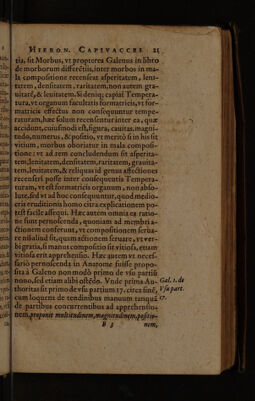 HIERON. CAPIVACCEI 21
tia, sit Morbus, vt proptores Galenus in libro
de morborum differẽtiis, inter morbos in ma-
la compositione recenseat asperitatem, leni-
tatem, densitatem, raritatem, non autem gra-
uitatẽ, & leuitatem. Si deniq; capiat Tempera-
tura, vt organum facultatis formatricis, vt for-
matricis effectus non consequuntur tempe-
raturam, hæc solum recensentur inter ea, quæ
accidunt, cuiusmodi est, figura, cauitas, magni-
tudo, numerus, & positio, vt meritò in his sit
vitium, morbus oboriatur in mala composi-
tione: vt ad rem concludendum sit asperita-
tem, lenitatem, densitatem, raritatem, grauita-
tem, leuitatem, & reliquas id genus affectiones
recenseri posse inter consequentia Tempera-
turam, vt est formatricis organum, non abso-
lutè, sed vt ad hoc consequuntur, quod medio-
cris eruditionis homo citra explicationem po-
test facilè assequi. Hæc autem omnia ea ratio-
ne sunt pernoscenda, quoniam ad membri a-
ctionem conferunt, vt compositionem serua-
re nisi aliud sit, quàm actionem seruare, vt ver-
bi gratia, si manus compositio sit vitiosa, etiam
vitiosa erit apprehensio. Hæc autem vt neces-
sariò pernoscenda in Anatome fuisse propo-
sita à Galeno non modò primo de vsu partiũ
nono, sed etiam alibi ostẽdo. Vnde prima Au-
thoritas sit primo de vsu partium 17. circa finẽ,
cum loquens de tendinibus manuum tanquã
de partibus concurrentibus ad apprehensio-
nem, proponit multitudinem, magnitudinem, positio-
B 3 nem,
Gal. 1. de
Vsu part.
17.